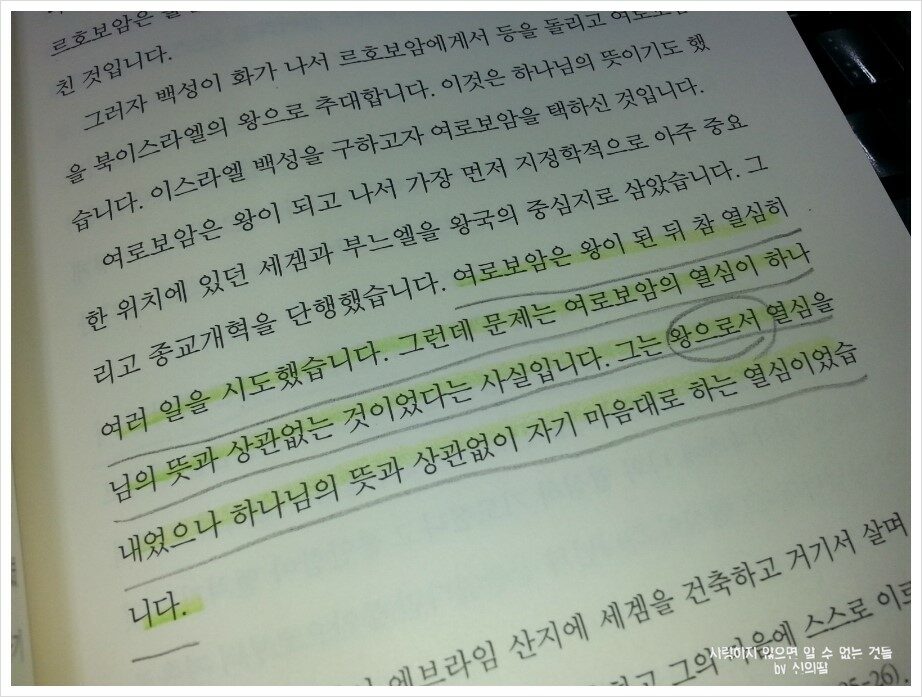 르호보암은
친 것입니다.
그러자 백성이 화가 나서 르호보암에게서 등을 돌리고 여로보암
을 북이스라엘의 왕으로 추대합니다. 이것은 하나님의 뜻이기도 했
습니다. 이스라엘 백성을 구하고자 여로보암을 택하신 것입니다.
여로보암은 왕이 되고 나서 가장 먼저 지정학적으로 아주 중요
한 위치에 있던 세겜과 부느엘을 왕국의 중심지로 삼았습니다. 그
리고 종교개혁을 단행했습니다. 여로보암은 왕이 된 뒤 참 열심히
여러 일을 시도했습니다. 그런데 문제는 여로보암의 열심이 하나
님의 뜻과 상관없는 것이었다는 사실입니다. 그는 왕으로서 열심을
내었으나 하나님의 뜻과 상관없이 자기 마음대로 하는 열심이었습
니다.
에브라임 산지에 세겜을 건축하고 거기서 살며
그의 마음에 스스로
사랑하지 않으면 알 수 없는 것들
by 신의딸